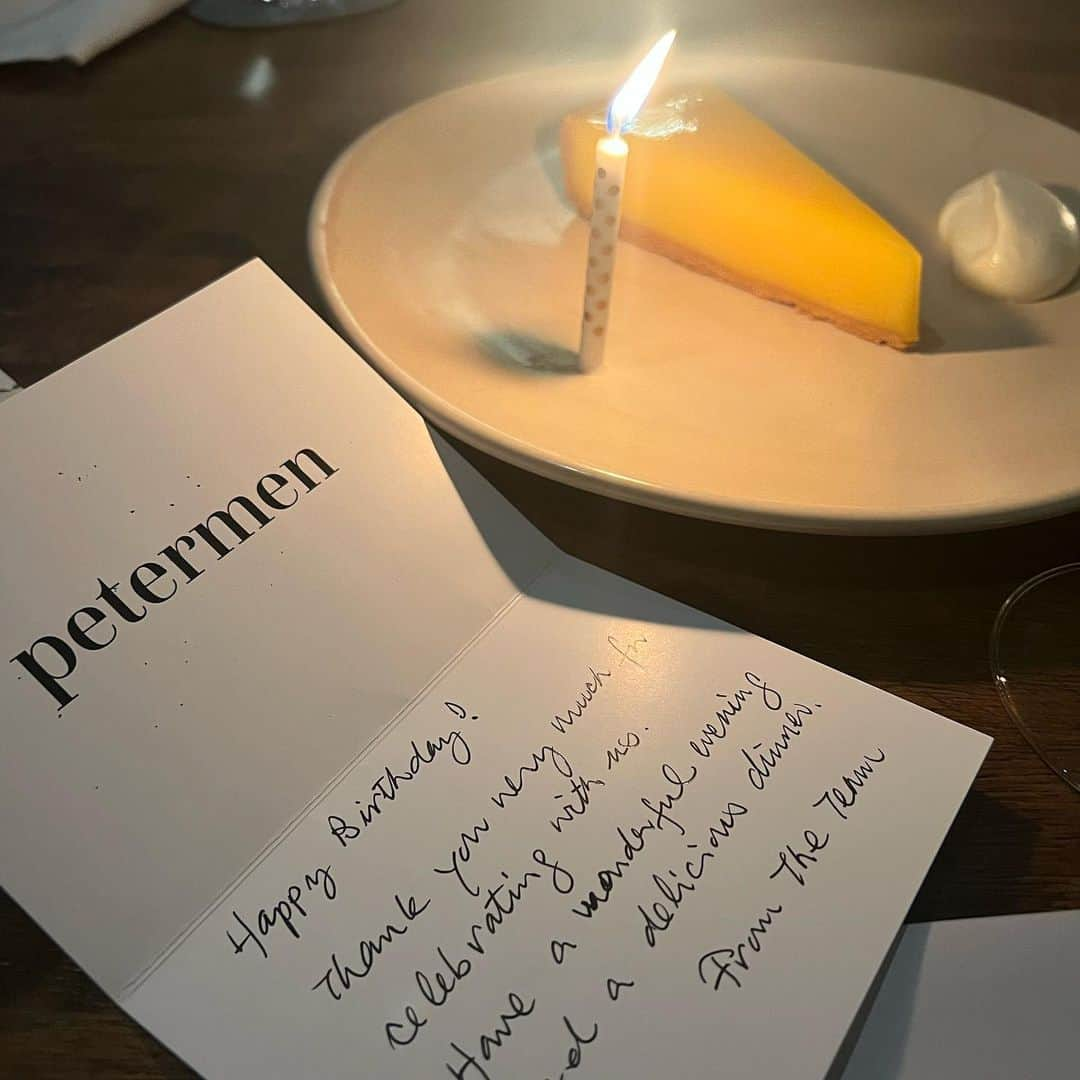 petermen
Happy Birthday!
Thank you very much for
celebrating with us.
Have a wonderful evening
and a delicious dinner.
From The Team